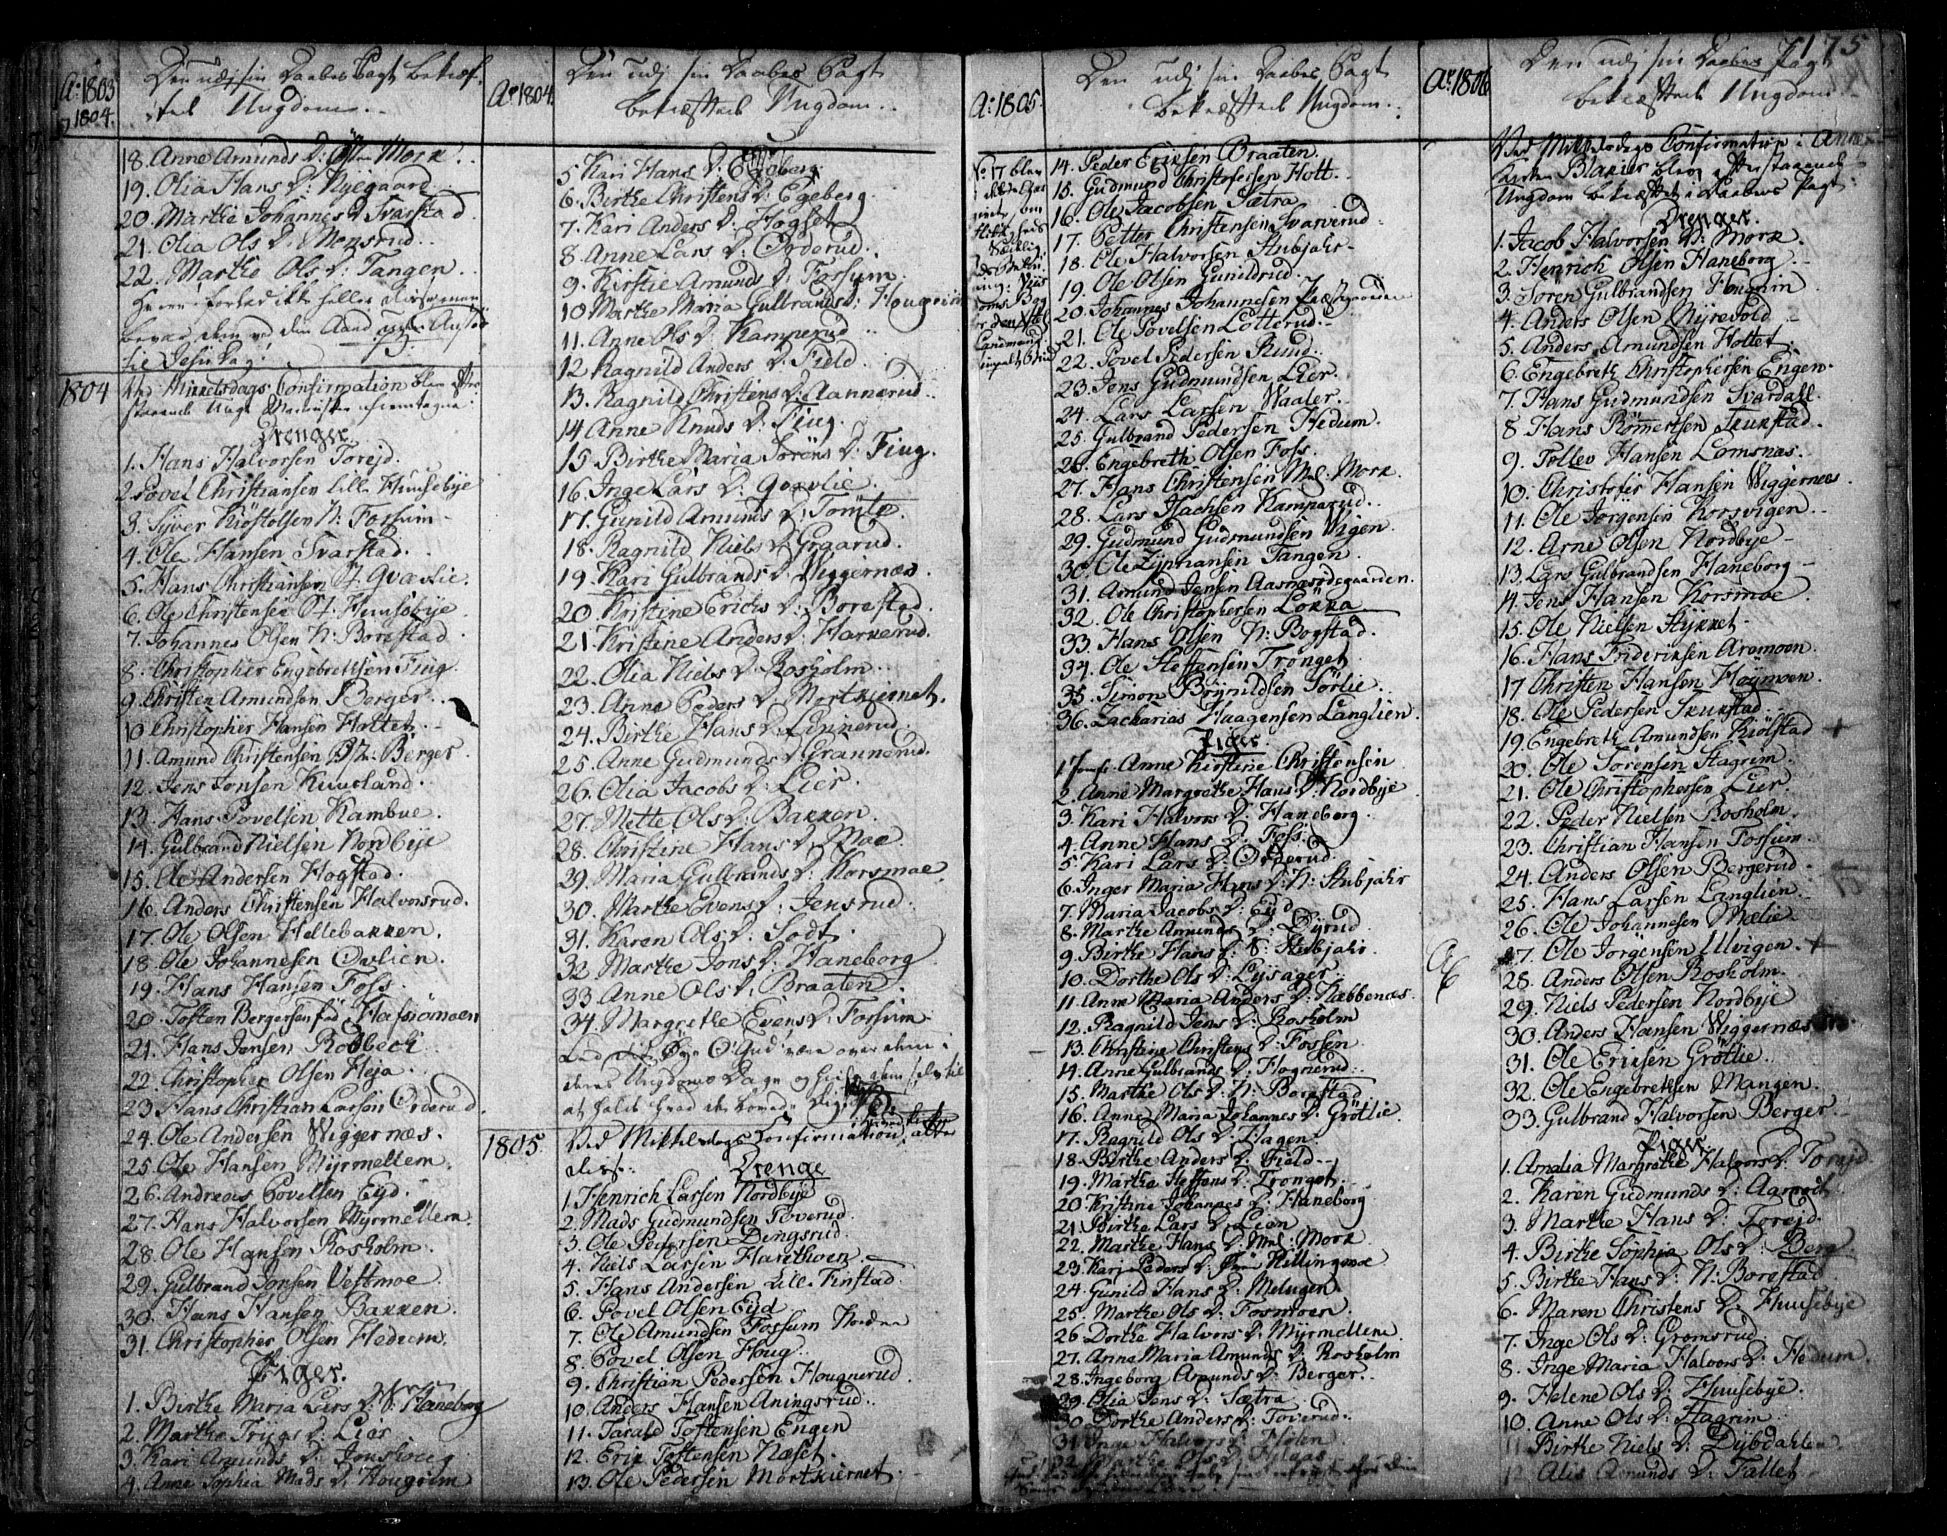 175
A: 1803
1804.
Den udj sin Daabes Pagt bekræf-
tet Ungdom.
18. Anne Amunds D: Mork.
19. Olia Hans D: Nyegaard
20. Marthe Johannes D: Svarstad
21. Olia Ols D: Monsrud.
22. Marthe Ols D: Tangen.
til Jesu Dag!
1804
Ved Mikkelsdags Confirmation blev
Drenger.
1. Hans Halvorsen Toreid.
2. Povel Christiansen lille Huusebye
3. Syver Kiöstolsen N: Fossum
4. Ole Hansen Svarstad.
5. Hans Christiansen St. Qvævlie.
6. Ole Christensen St. Huusebye
7. Johannes Olsen N: Borestad.
8. Christopher Engebrethsen Fiug.
9. Christen Amundsen Berger.
10. Christopher Hansen Hottet.
11. Amund Christensen Berger.
12. Jens Jonsen Kuusland.
13. Hans Povelsen Kambue.
14. Gulbrand Nielsen Nordbye
15. Ole Andersen Hogstad.
16. Anders Christensen Halvorsrud.
17. Ole Olsen Hellebakken.
18. Ole Johannesen Ovlien.
19. Hans Hansen Foss.
20. Tosten Bergersen
21. Hans Jensen Rodbeck
22. Christopher Olsen Heja.
23. Hans Christian Larsen Orderud.
24. Ole Andersen Wiggernæs.
25. Ole Hansen Myrmellem.
26. Andreas Povelsen Eijd.
27. Hans Halvorsen Myrmellem.
28. Ole Hansen Rosholm.
29. Gulbrand Jonsen Vestmoe.
30. Hans Hansen Bakken.
31. Christopher Olsen Hedum.
Piger.
1. Birthe Maria Lars D: S. Haneborg
2. Marthe Trygs D: Lier
3. Kari Amunds D:
4. Anne Sophia Mads D: Hougrim
Ao 1804.
Den udj sin Daabes Pagt
bekræftted Ungdom.
5. Kari Hans D: Egeberg.
6. Birthe Christens D: Egeberg.
7. Kari Anders D: Hogset.
8. Anne Lars D: Orderud.
9. Kirstie Amund D: Fossum.
10. Marthe Maria Gulbrands D: Hougrim
11. Anne Ols D: Kamperud.
12. Ragnild Anders D: Field.
13. Ragnild Christens D: Aannerud.
14. Anne Knuds D: Fiug.
15. Birthe Maria Sörens D: Fiug.
16. Inge Lars D: Qvævlie.
17. Gunild Amunds D: Tomte.
18. Ragnild Niels D: Graarud.
19. Kari Gulbrands D: Wiggernæs.
20. Kristine Erichs D: Borestad.
21. Kristine Anders D: Harkerud.
22. Olia Niels D: Rosholm.
23. Anne Peders D: Mortkiernet.
24. Birthe Hans D: Linnerud.
25. Anne Gudmunds D: Grannerud.
26. Olia Jacobs D: Lier.
27. Mette Ols D: Bakken.
28. Christine Hans D: Moe.
29. Maria Gulbrands D: Korsmoe.
30. Marthe Evens D: Jensrud.
31. Karen Ols D: Sodt.
32. Marthe Jons D: Haneborg.
33. Anne Ols D: Braaten.
34. Margrethe Evens D: Fossum.
1805
Ved Mikkelsdags Confirmation
Drenge
1. Henrich Larsen Nordbye
2. Mads Gudmundsen Toverud.
3. Ole Pedersen Dingsrud.
4. Niels Larsen Harethoen
5. Hans Andersen Lille Kinstad.
6. Povel Olsen Eijd
7. Ole Amundsen Fossum Nordre
8. Povel Olsen Houg.
9. Christian Pedersen Hougnerud.
10. Anders Hansen Aningsrud.
11. Tarald Tostensen Engen
12. Erik Tostensen Næset.
13. Ole Pedersen Mortkiernet.
A: 1805.
Den udj sin Daabes Pagt
bekræftted Ungdom.
14. Peder Eriksen Braaten.
15. Gudmund Christofersen Hott.
16. Ole Jacobsen Sætra.
17. Petter Christensen Svarverud.
18. Ole Halvorsen Stubjahr.
19. Ole Olsen Gunildrud.
20. Johannes Johannesen Præstgaarden
21. Ole Povelsen Lotterud.
22. Povel Pedersen Ruud.
23. Jens Gudmundsen Lier.
24. Lars Larsen Waaler.
25. Gulbrand Pedersen Hedum.
26. Engebreth Olsen Foss.
27. Hans Christensen Mel: Mork.
28. Lars Isachsen Kamperud.
29. Gudmund Gudmundsen Wigen.
30. Ole Zyprians​en Tangen.
31. Amund Jensen Aasnæsödegaarden.
32. Ole Christophersen Lökka
33. Hans Olsen N: Bogstad.
34. Ole Steffensen Tronget.
35. Simon Brynildsen Sörlie.
36. Zacharias Haagensen Langlien.
Piger.
1. Jomf. Anne Kirstine Christensen
2. Anne Margrethe Hans D: Nordbye
3. Kari Halvors D: Haneborg.
4. Anne Hans D: Foss.
5. Kari Lars D: Orderud.
6. Inger Maria Hans D: N: Stubjahr
7. Maria Jacobs D: Eijd
8. Marthe Amunds D: Dyrud.
9. Birthe Hans D: S: Stubjahr.
10. Dorthe Ols D: Lysager.
11. Anne Maria Anders D: Næbbenæs.
12. Ragnild Jens D: Rosholm
13. Christine Christens D: Fossen.
14. Anne Gulbrands D: Hognerud.
15. Marthe Ols D: N: Borestad.
16. Anne Maria Johannes D: Grötlie.
17. Ragnild Ols D: Hagen.
18. Birthe Anders D: Field.
19. Marthe Steffens D: Tronget.
20. Kristine Johannes D: Haneborg.
21. Birthe Lars D: Lien
22. Marthe Hans D: Mel: Mork.
23. Kari Peders D: Killingmoe
24. Gunild Hans D: Melvigen.
25. Marthe Ols D: Fosmoen.
26. Dorthe Halvors D: Myrmellem.
27. Anne Maria Amunds D: Rosholm
28. Ingeborg Amunds D: Berger.
29. Olia Jens D: Sætra.
30. Dorthe Anders D: Toverud.
31. Inge Halvors D: Holen
32. Marthe Ols D:
Ao 1806
Den udj sin Daabes Pagt
bekræftted Ungdom.
Ved Mikkelsdags Confirmation i Anne-
kirken Blaker blev efterstaaende
Ungdom bekræftet i Daabens Pagt.
Drenger.
1. Jacob Halvorsen N: Mork.
2. Henrich Olsen Haneborg.
3. Sören Gulbrandsen Hougrim
4. Anders Olsen Nyrevold.
5. Anders Amundsen Hottet.
6. Engebreth Christophersen Engen.
7. Hans Gudmundsen Svardall.
8. Hans Römmertsen Skukstad.
9. Tollev Hansen Lomsnæs.
10. Christofer Hansen Wiggernæs.
11. Ole Jörgensen Korsvigen.
12. Arne Olsen Nordbye
13. Lars Gulbrandsen Haneborg
14. Jens Hansen Korsmoe.
15. Ole Nielsen Stykket.
16. Hans Frideriksen Aremoen.
17. Christen Hansen Höymoen.
18. Ole Pedersen Skukstad.
19. Engebreth Amundsen Kiölstad +
20. Ole Sörensen Hagrim.
21. Ole Christophersen Lier.
22. Peder Nielsen Rosholm.
23. Christian Hansen Fossum.
24. Anders Olsen Bergerud.
25. Hans Larsen Langlien.
26. Ole Johannesen Mælie.
27. Ole Jörgensen Ulvigen. +
28. Anders Olsen Rosholm.
29. Niels Pedersen Nordbye
30. Anders Hansen Wiggernæs
31. Ole Eriksen Grötlie.
32. Ole Engebrethsen Mangen.
33. Gulbrand Halvorsen Berger.
Piger.
1. Amalia Margrethe Halvors D: Toreid.
2. Karen Gudmunds D: Aarnodt.
3. Marthe Hans D: Toreid.
4. Birthe Sophia Ols D: Berg.
5. Birthe Hans D: N: Borestad.
6. Maren Christens D: Huusebye
7. Inge Ols D: Gromsrud.
8. Inge Maria Halvors D: Hedum.
9. Helene Ols D: Huusebye.
10. Anne Ols D: Hagrim.
11. Birthe Niels D: Dybdahlen
12. Alis Amunds D: Tallet.